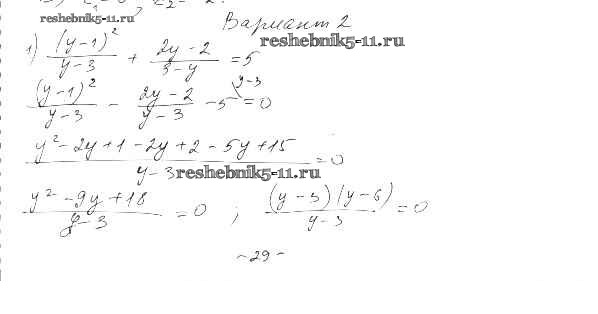 reshebnik5-11.ru
Вариант 2
reshebnik5-11.ru
1) (y-1)²/(y-3) + (2y-2)/(3-y) = 5
(y-1)²/(y-3) - (2y-2)/(y-3) - 5 y-3 = 0
(y² - 2y + 1 - 2y + 2 - 5y + 15)/(y-3) = 0
reshebnik5-11.ru
(y² - 9y + 18)/(y-3) = 0 ; (y-3)(y-6)/(y-3) = 0
~29~